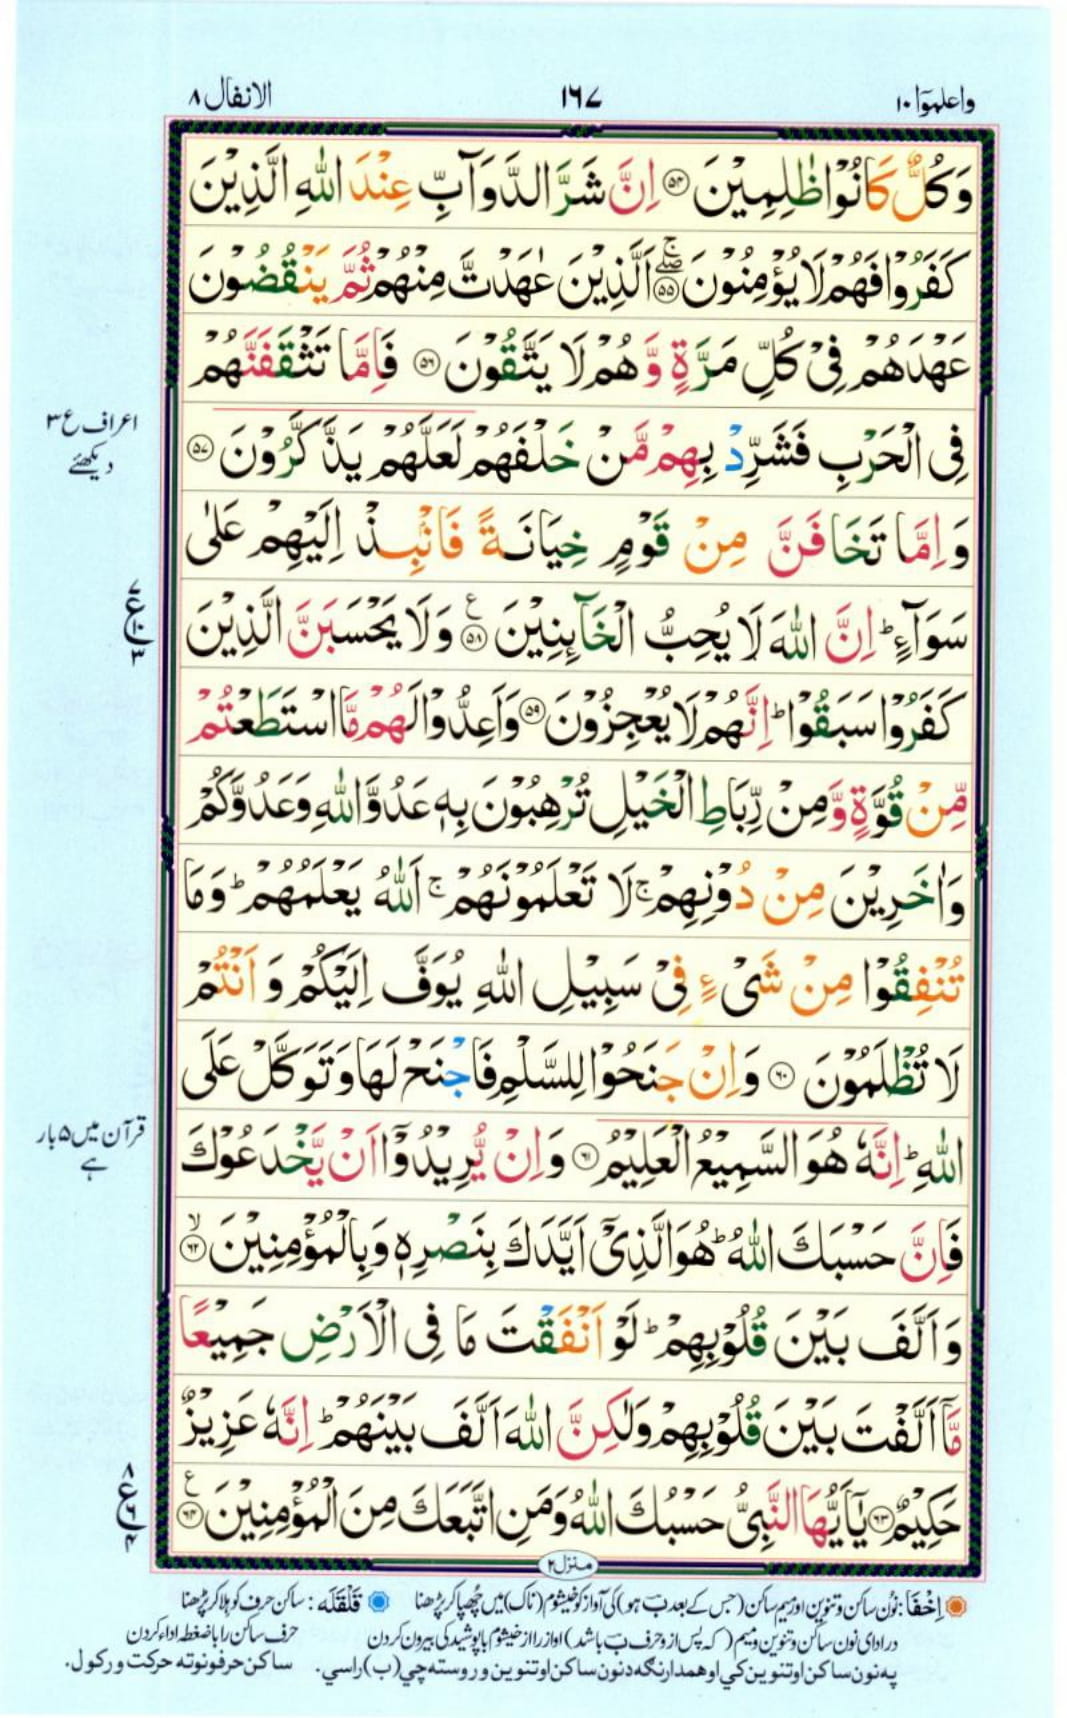 واعلموٓا ١٠
١٦٧
الانفال ٨
وَكُلٌّ كَانُوْا ظٰلِمِيْنَ ۝٥٤ اِنَّ شَرَّ الدَّوَآبِّ عِنْدَ اللّٰهِ الَّذِيْنَ
كَفَرُوْا فَهُمْ لَا يُؤْمِنُوْنَ ۝٥٥ۖۚ اَلَّذِيْنَ عٰهَدْتَّ مِنْهُمْ ثُمَّ يَنْقُضُوْنَ
عَهْدَهُمْ فِيْ كُلِّ مَرَّةٍ وَّ هُمْ لَا يَتَّقُوْنَ ۝٥٦ فَاِمَّا تَثْقَفَنَّهُمْ
فِى الْحَرْبِ فَشَرِّدْ بِهِمْ مَّنْ خَلْفَهُمْ لَعَلَّهُمْ يَذَّكَّرُوْنَ ۝٥٧
اعراف ع ٣
دیکھئے
وَ اِمَّا تَخَافَنَّ مِنْ قَوْمٍ خِيَانَةً فَانْۢبِذْ اِلَيْهِمْ عَلٰى
سَوَآءٍ ؕ اِنَّ اللّٰهَ لَا يُحِبُّ الْخَآئِنِيْنَ ۝٥٨ ع وَلَا يَحْسَبَنَّ الَّذِيْنَ
٧
ع
١٠
٣
كَفَرُوْا سَبَقُوْا ؕ اِنَّهُمْ لَا يُعْجِزُوْنَ ۝٥٩ وَاَعِدُّوْا لَهُمْ مَّا اسْتَطَعْتُمْ
مِّنْ قُوَّةٍ وَّمِنْ رِّبَاطِ الْخَيْلِ تُرْهِبُوْنَ بِهٖ عَدُوَّ اللّٰهِ وَعَدُوَّكُمْ
وَاٰخَرِيْنَ مِنْ دُوْنِهِمْ ۚ لَا تَعْلَمُوْنَهُمْ ۚ اَللّٰهُ يَعْلَمُهُمْ ؕ وَمَا
تُنْفِقُوْا مِنْ شَىْءٍ فِيْ سَبِيْلِ اللّٰهِ يُوَفَّ اِلَيْكُمْ وَ اَنْتُمْ
لَا تُظْلَمُوْنَ ۝٦٠ وَاِنْ جَنَحُوْا لِلسَّلْمِ فَاجْنَحْ لَهَا وَتَوَكَّلْ عَلَى
اللّٰهِ ؕ اِنَّهٗ هُوَ السَّمِيْعُ الْعَلِيْمُ ۝٦١ وَاِنْ يُّرِيْدُوْٓا اَنْ يَّخْدَعُوْكَ
قرآن میں ٥ بار
ہے
فَاِنَّ حَسْبَكَ اللّٰهُ ؕ هُوَ الَّذِيْٓ اَيَّدَكَ بِنَصْرِهٖ وَبِالْمُؤْمِنِيْنَ ۝٦٢ۙ
وَاَلَّفَ بَيْنَ قُلُوْبِهِمْ ؕ لَوْ اَنْفَقْتَ مَا فِى الْاَرْضِ جَمِيْعًا
مَّآ اَلَّفْتَ بَيْنَ قُلُوْبِهِمْ وَلٰكِنَّ اللّٰهَ اَلَّفَ بَيْنَهُمْ ؕ اِنَّهٗ عَزِيْزٌ
حَكِيْمٌ ۝٦٣ يٰٓاَيُّهَا النَّبِىُّ حَسْبُكَ اللّٰهُ وَمَنِ اتَّبَعَكَ مِنَ الْمُؤْمِنِيْنَ ۝٦٤ ع
٨
ع
٦
٤
منزل ٢
اِخْفَا: نون ساکن و تنوین اور میم ساکن (جس کے بعد ب ہو) کی آواز کو خیشوم (ناک) میں چھپا کر پڑھنا قَلْقَلَه: ساکن حرف کو ہلا کر پڑھنا
در ادای نون ساکن و تنوین و میم (که پس از و حرف ب باشد) آواز را از خیشوم باپوشیدگی بیرون کردن حرف ساکن را باضغطه اداء کردن
په نون ساکن او تنوین کي او همدارنگه د نون ساکن او تنوین وروسته چي (ب) راسي. ساکن حرفو نو ته حرکت ورکول.